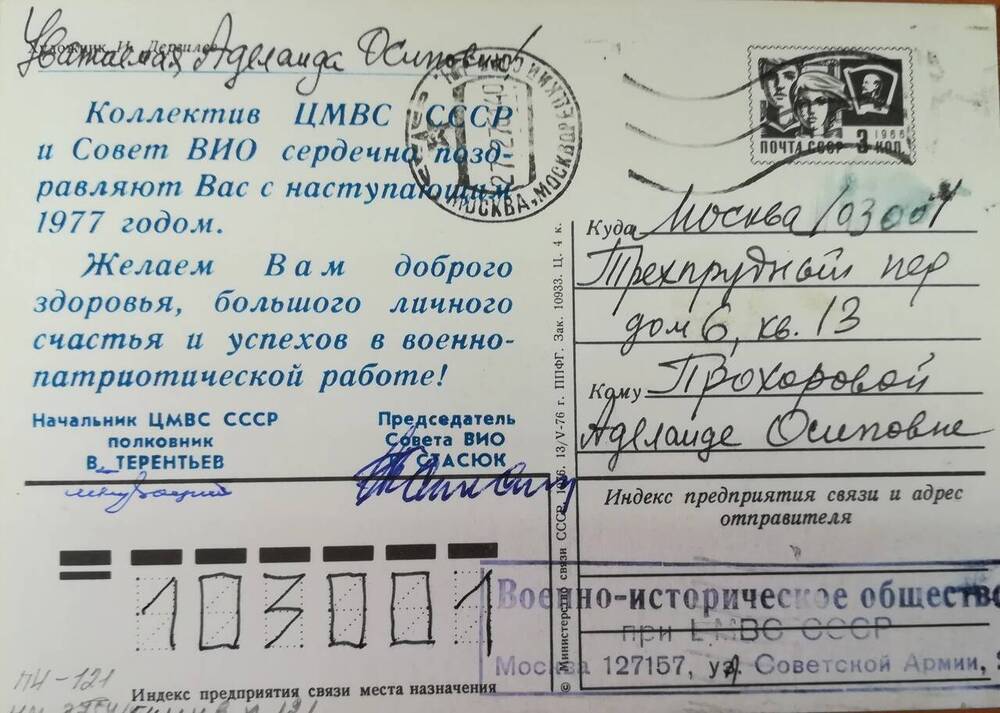 Уважаемая Аделаида Осиповна!
Художник И. Дергилев
Коллектив ЦМВС СССР
и Совет ВИО сердечно позд-
равляют Вас с наступающим
1977 годом.
Желаем Вам доброго
здоровья, большого личного
счастья и успехов в военно-
патриотической работе!
Начальник ЦМВС СССР
полковник
В. ТЕРЕНТЬЕВ
Председатель
Совета ВИО
СТАСЮК
МОСКВА
ПОЧТА СССР 3 КОП.
1966
Куда Москва 103001
Трехпрудный пер
дом 6, кв. 13
Кому Прохоровой
Аделаиде Осиповне
Индекс предприятия связи и адрес
отправителя
Военно-историческое общество
при ЦМВС СССР
Москва 127157, ул. Советской Армии,
© Министерство связи СССР, 1976. 13/V-76 г. ППФГ. Зак. 10933. Ц. 4 к.
103001
Индекс предприятия связи места назначения
ПИ-121